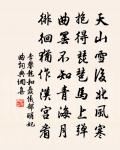 天山雪後北風寒
抱得琵琶馬上彈
曲罷不知青海月
徘徊猶作漢宮看
李攀龍和聶儀部明妃
曲詞典網喜